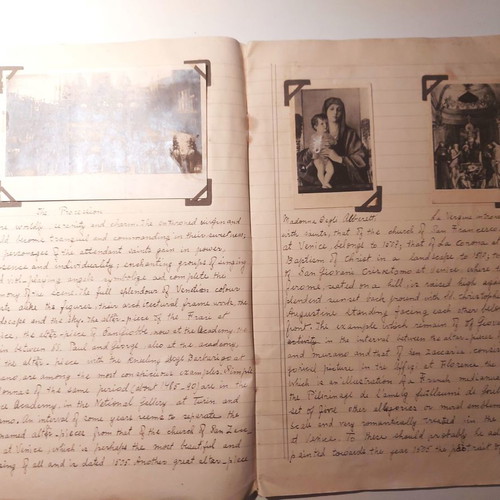 The Procession
more worldly suavity and charm. The enthroned virgin and
child become tranquil and commanding in their sweetness;
personages of the attendant saints gain in power,
presence and individuality; enchanting groups of singing
and viol-playing angels symbolize and complete the
harmony of the scene. The full splendour of Venetian colour
alike the figures, their architectural framework, the
landscape and the sky. The altar-piece of the Frari at
Venice, the altar-piece of San Giobbe, now at the academy, the
between SS. Paul and George, also at the academy,
the altar-piece with the kneeling doge Barbarigo at
Murano are among the most conspicuous examples. Simple
Madonnas of the same period (about 1485-90) are in the
Venice Academy, in the National Gallery, at Turin and
Bergamo. An interval of some years seems to separate the
named altar-pieces from that of the church of San Zacc
at Venice, which is perhaps the most beautiful and
of all and is dated 1505. Another great altar-piece
Madonna Degli Alberetti
La Vergine in trono
with saints, that of the church of San Francesco
at Venice, belongs to 1507; that of La Corona at
Baptism of Christ in a landscape to 1510; to
of San Giovanni Crisostomo at Venice, where
Jerome, seated on a hill, is raised high against
splendent sunset background with SS. Christopher
Augustine standing facing each other below
front. The example which remain of of
activity in the interval between the altar-pieces
and Murano and that of San Zaccaria.
gorical picture in the Uffizi at Florence the
which is an illustration of a French mediaeval
the Pilgrimage de l'ame by Guillaume de
set of five other allegories or moral emblems
scale and very romantically treated in the
at Venice. To these should probably be ad
painted towards the year 1505 the portrait of